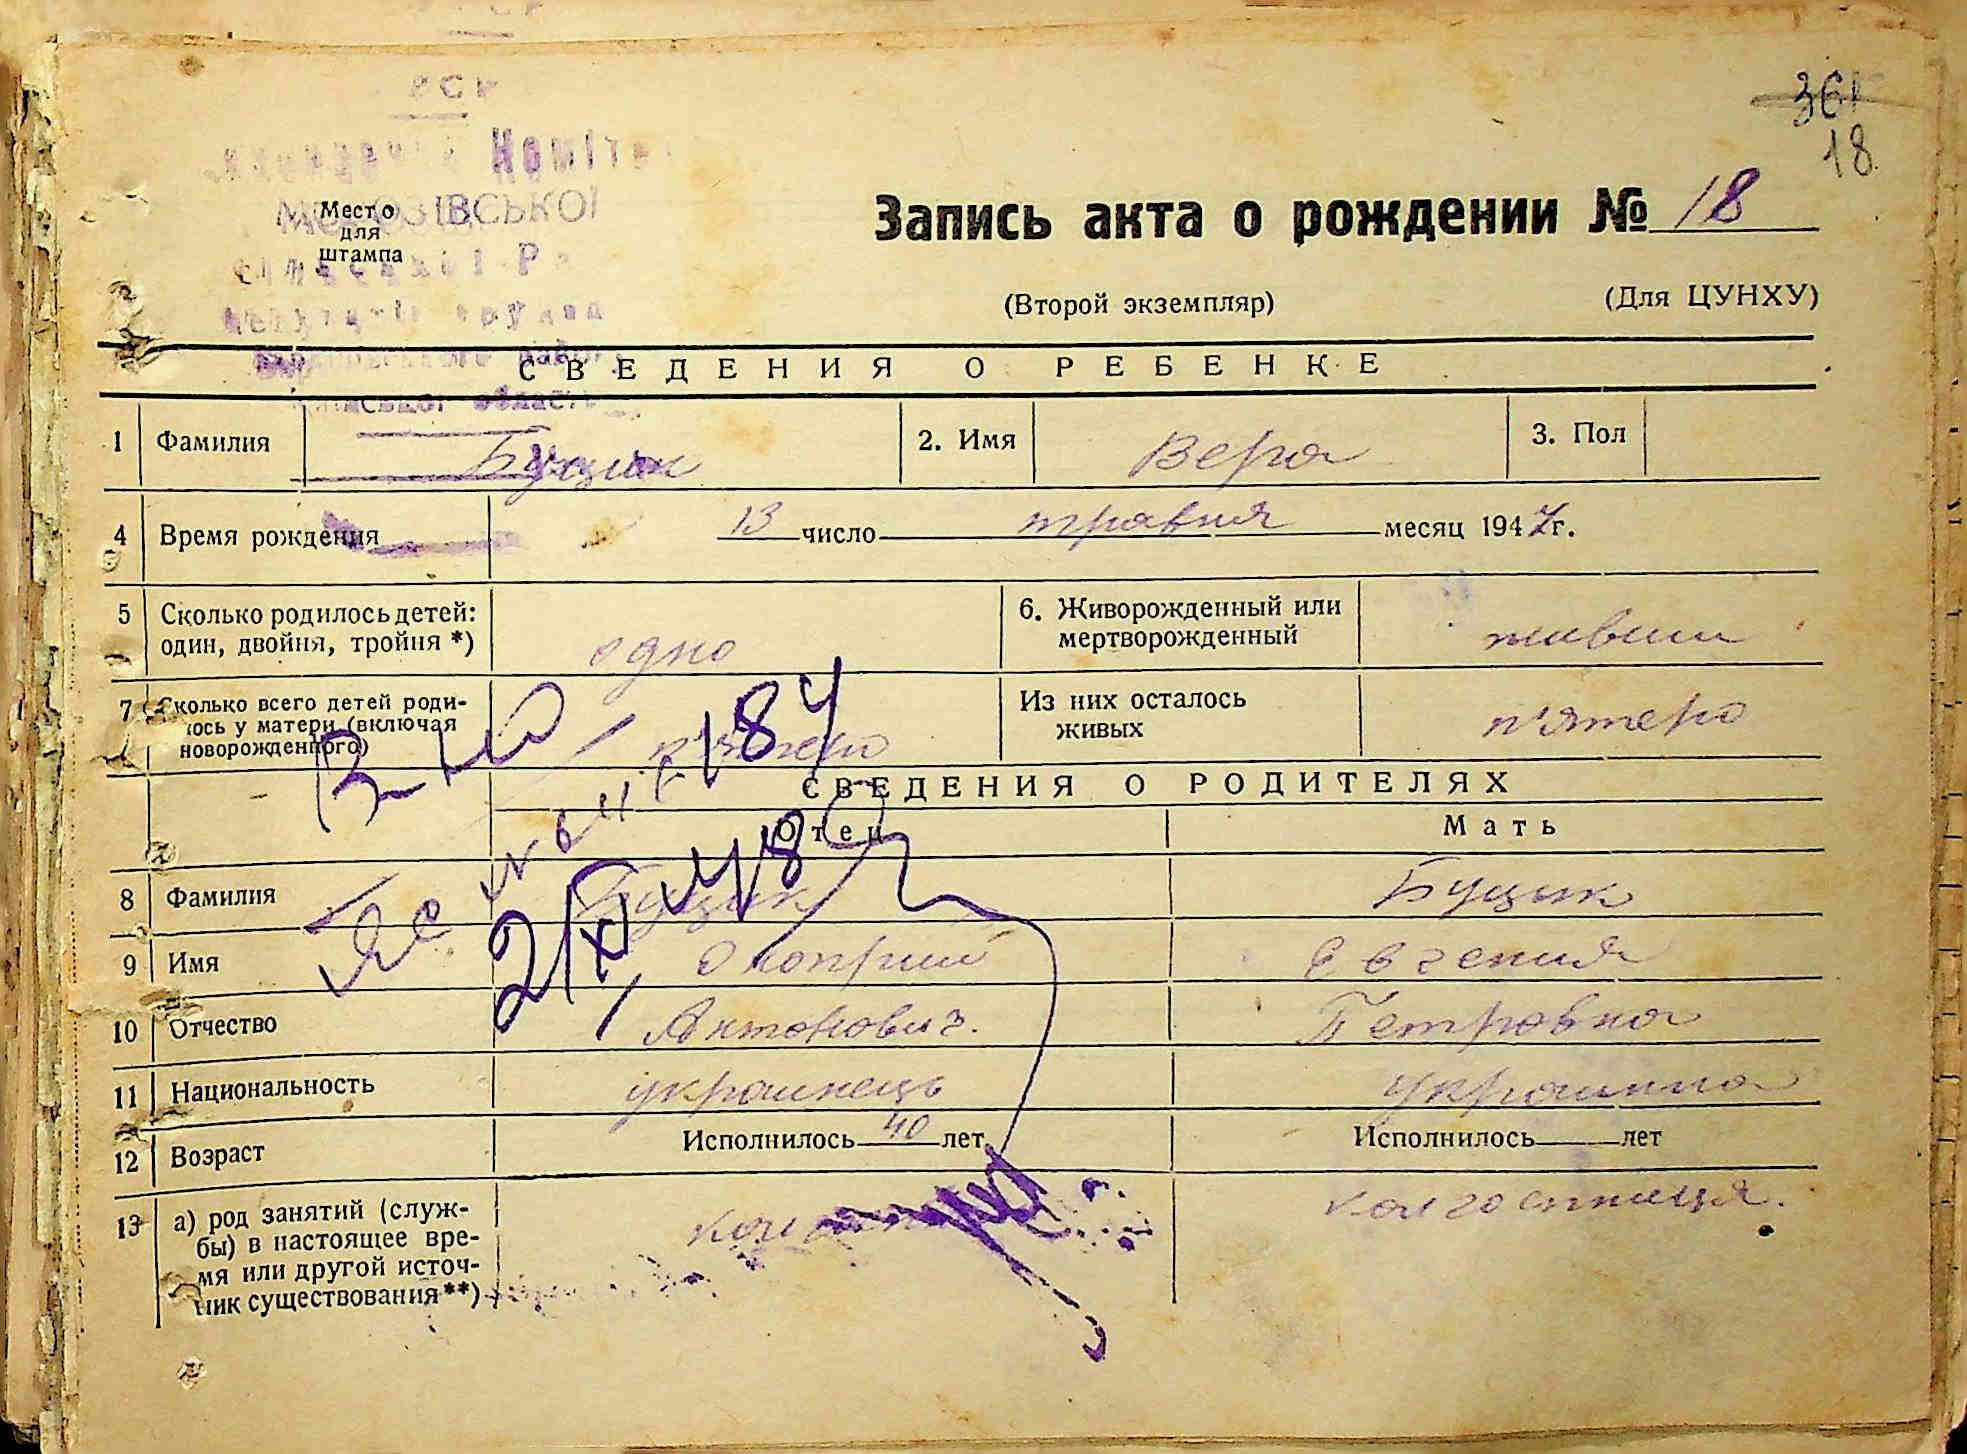 РСР
Коміте
МОРОЗІВСЬКОЇ
Место
для
штампа
області
361
18
Запись акта о рождении № 18
(Второй экземпляр) (Для ЦУНХУ)
СВЕДЕНИЯ О РЕБЕНКЕ
1 Фамилия Буцик 2. Имя Вера 3. Пол
4 Время рождения 13 число травня месяц 1947 г.
5 Сколько родилось детей: один, двойня, тройня *) одно 6. Живорожденный или мертворожденный живим
7 Сколько всего детей родилось у матери (включая новорожденного) п'ятеро Из них осталось живых п'ятеро
СВЕДЕНИЯ О РОДИТЕЛЯХ
Отец Мать
8 Фамилия Буцик Буцик
9 Имя Евгения
10 Отчество Антонович. Петровна
11 Национальность украинець украинка
12 Возраст Исполнилось 40 лет Исполнилось лет
13 а) род занятий (служ-
бы) в настоящее вре-
мя или другой источ-
ник существования**)
колгоспниця.